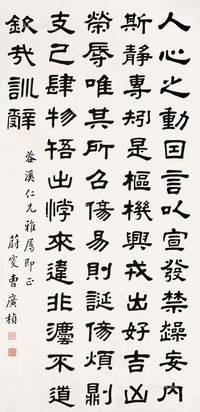 人心之動因言以宣發禁躁妄內
斯靜專矧是樞機興戎出好吉凶
榮辱唯其所召傷易則誕傷煩則
支己肆物牾出悖來違非灋不道
欽哉訓辭
蓉溪仁兄雅屬即正
蔚叟曹廣楨